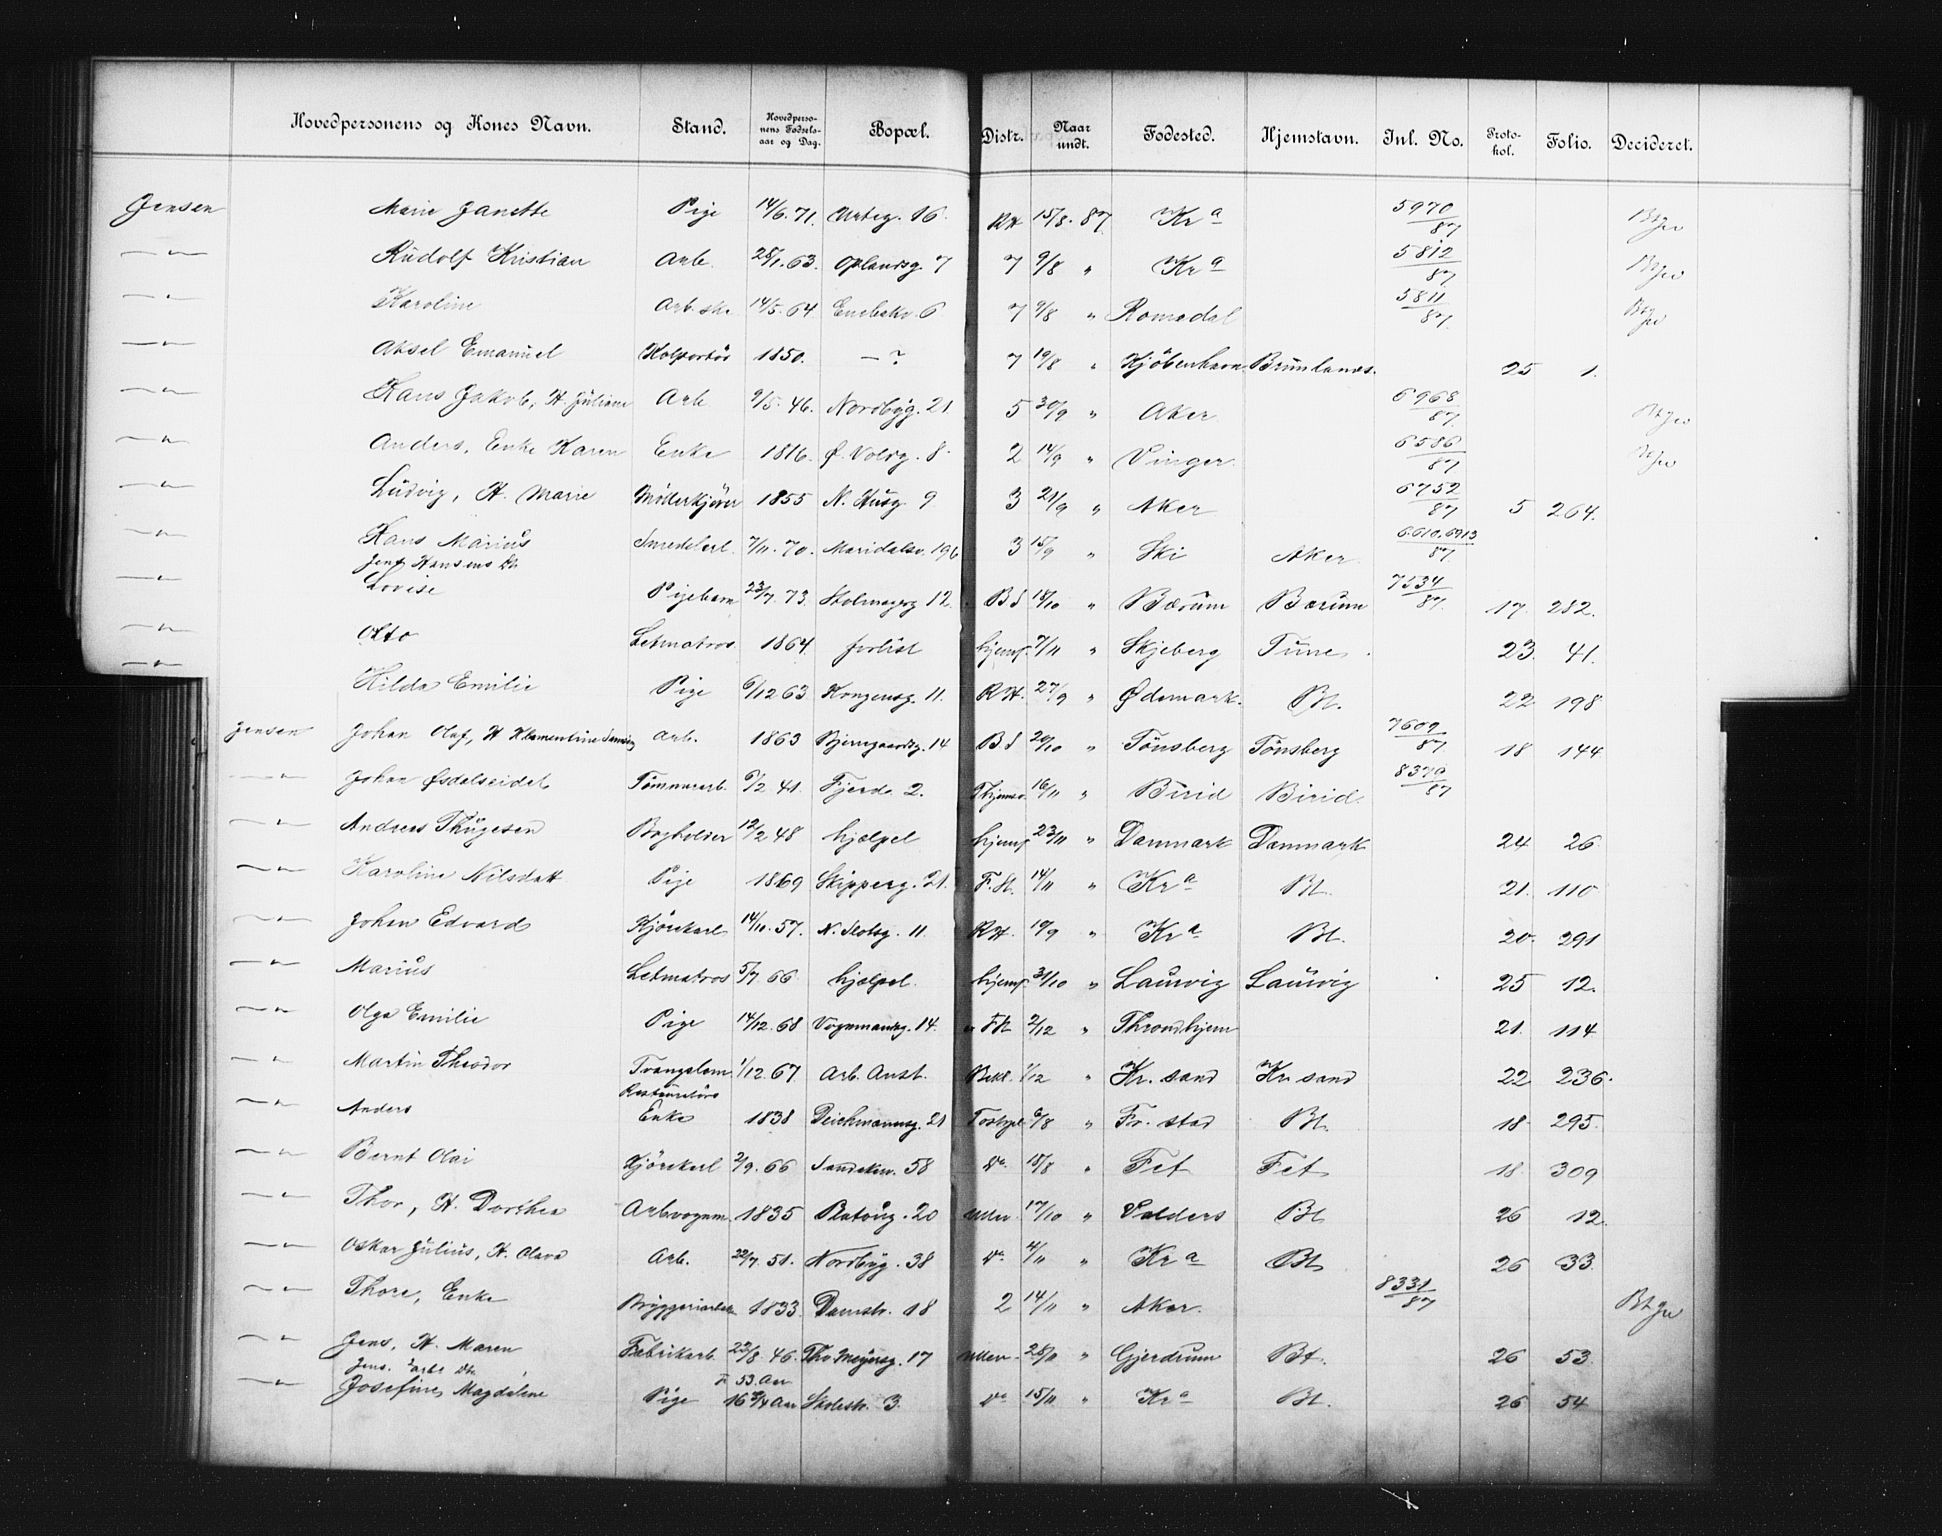 Hovedpersonens og Kones Navn. Stand. Hovedpersonens Fødselsaar og Dag. Bopæl. Distr. Naar undt. Fødested. Hjemstavn. Inl. No. Protokol. Folio. Decideret.
Jensen Marie Janette Pige 14/6. 71. 16. RH 15/8. 87 Kra 5970/87
—"— Rudolf Kristian Arb. 28/1. 63. Oplandsg. 7 7 9/8 " Kra 5812/87
—"— Karoline Arb. ske 14/5. 64. Enebakv. 6 7 9/8 " Romedal 5811/87
—"— Aksel Emanuel Kolportør 1850. —? 7 19/8 " Kjöbenhavn Brunlanæs. 25 1.
—"— Hans Jakob, H. Juliane Arb 9/5. 46. Nordbyg. 21 5 30/9 " Aker 6968/87
—"— Anders, Enke Karen Enke 1816. Ø. Voldg. 8. 2 14/9 " Vinger 6586/87
—"— Ludvig, H. Marie 1855 N. Husg 9 3 21/9 " Aker 6752/87 5 264.
—"— Hans Marius Smedelærl. 7/11. 70. Maridalsv. 196 3 15/9 " Ski Aker 6610.6913/87
Jens Hansens Dtr.
—"— Lovise Pigebarn 23/7. 73. Skolmagerg 12. Bd 18/10 " Bærum Bærum 7534/87 17. 282.
—"— Otto Letmatros 1864. forlist hjemf. 7/11 " Skjeberg Tune. 23. 41.
—"— Hilda Emilie Pige 6/12 63 Kongensg. 11. RH. 27/9 " Ødemark. Bt. 22 198
Jensen Johan Olaf, H Klementine Arb. 1863 Bjerregaardsg. 14 Bd 20/10 " Tönsberg Tönsberg 7609/87 18 144
—"— Johan Øsdalseidet Tømmerarb. 6/2 41. Fjerd. 2. 16/11 " Birid Birid. 8370/87
—"— Andreas Thugesen Bogholder 12/2 48 hjælpel hjemf 23/11 " Danmark Danmark 24 26
—"— Karoline Nilsdatt Pige 1869 Skipperg. 21. F. H. 14/11 " Kra Bt. 21. 110
—"— Johan Edvard Kjörekarl 14/10. 57. N. Slotsg. 11. RH. 19/9 " Kra Bt. 20. 291
—"— Marius Letmatros 5/7 66 hjælpel. hjemf. 31/10 " Laurvig Laurvig 25 12.
—"— Olga Emilie Pige 14/12. 68 Vognmandsg. 14. FH 2/12 " Throndhjem 21. 114
—"— Martin Theodor Tvangslem 1/12. 67. Arb. Anst. 1/12 " Kr. sand Kr sand 22 236.
Restauratörs
—"— Anders Enke 1838 Deichmannsg. 21 6/8 " Fr. stad Bt. 18. 295.
—"— Bernt Olai Kjörekarl 2/9. 66 Sandakv. 58 do. 15/8 " Fet Fet 18. 309
—"— Thor, H. Dorthea Arb.vognm. 1835 Platoug. 20 uden. 17/10 " Valders Bt. 26 12.
—"— Oskar Julius, H. Olava Arb. 22/7. 51. Nordbyg. 38 do 4/11 " Kra Bt. 26 33.
—"— Thore, Enke Bryggeriarbeid 1833 Damstr. 18 2 14/11 " Aker. 8331/87
—"— Jens, H. Maren Fabrikarb. 23/8. 46. Thv Meyersg. 17 uden. 28/11 " Gjerdrum Bt. 26 53.
Jens. Dtr. 53. Aar
—"— Josefine Magdalene Pige 16 3/4 Aar Skolestr. 3. do 15/11 " Kra Bt. 26 54